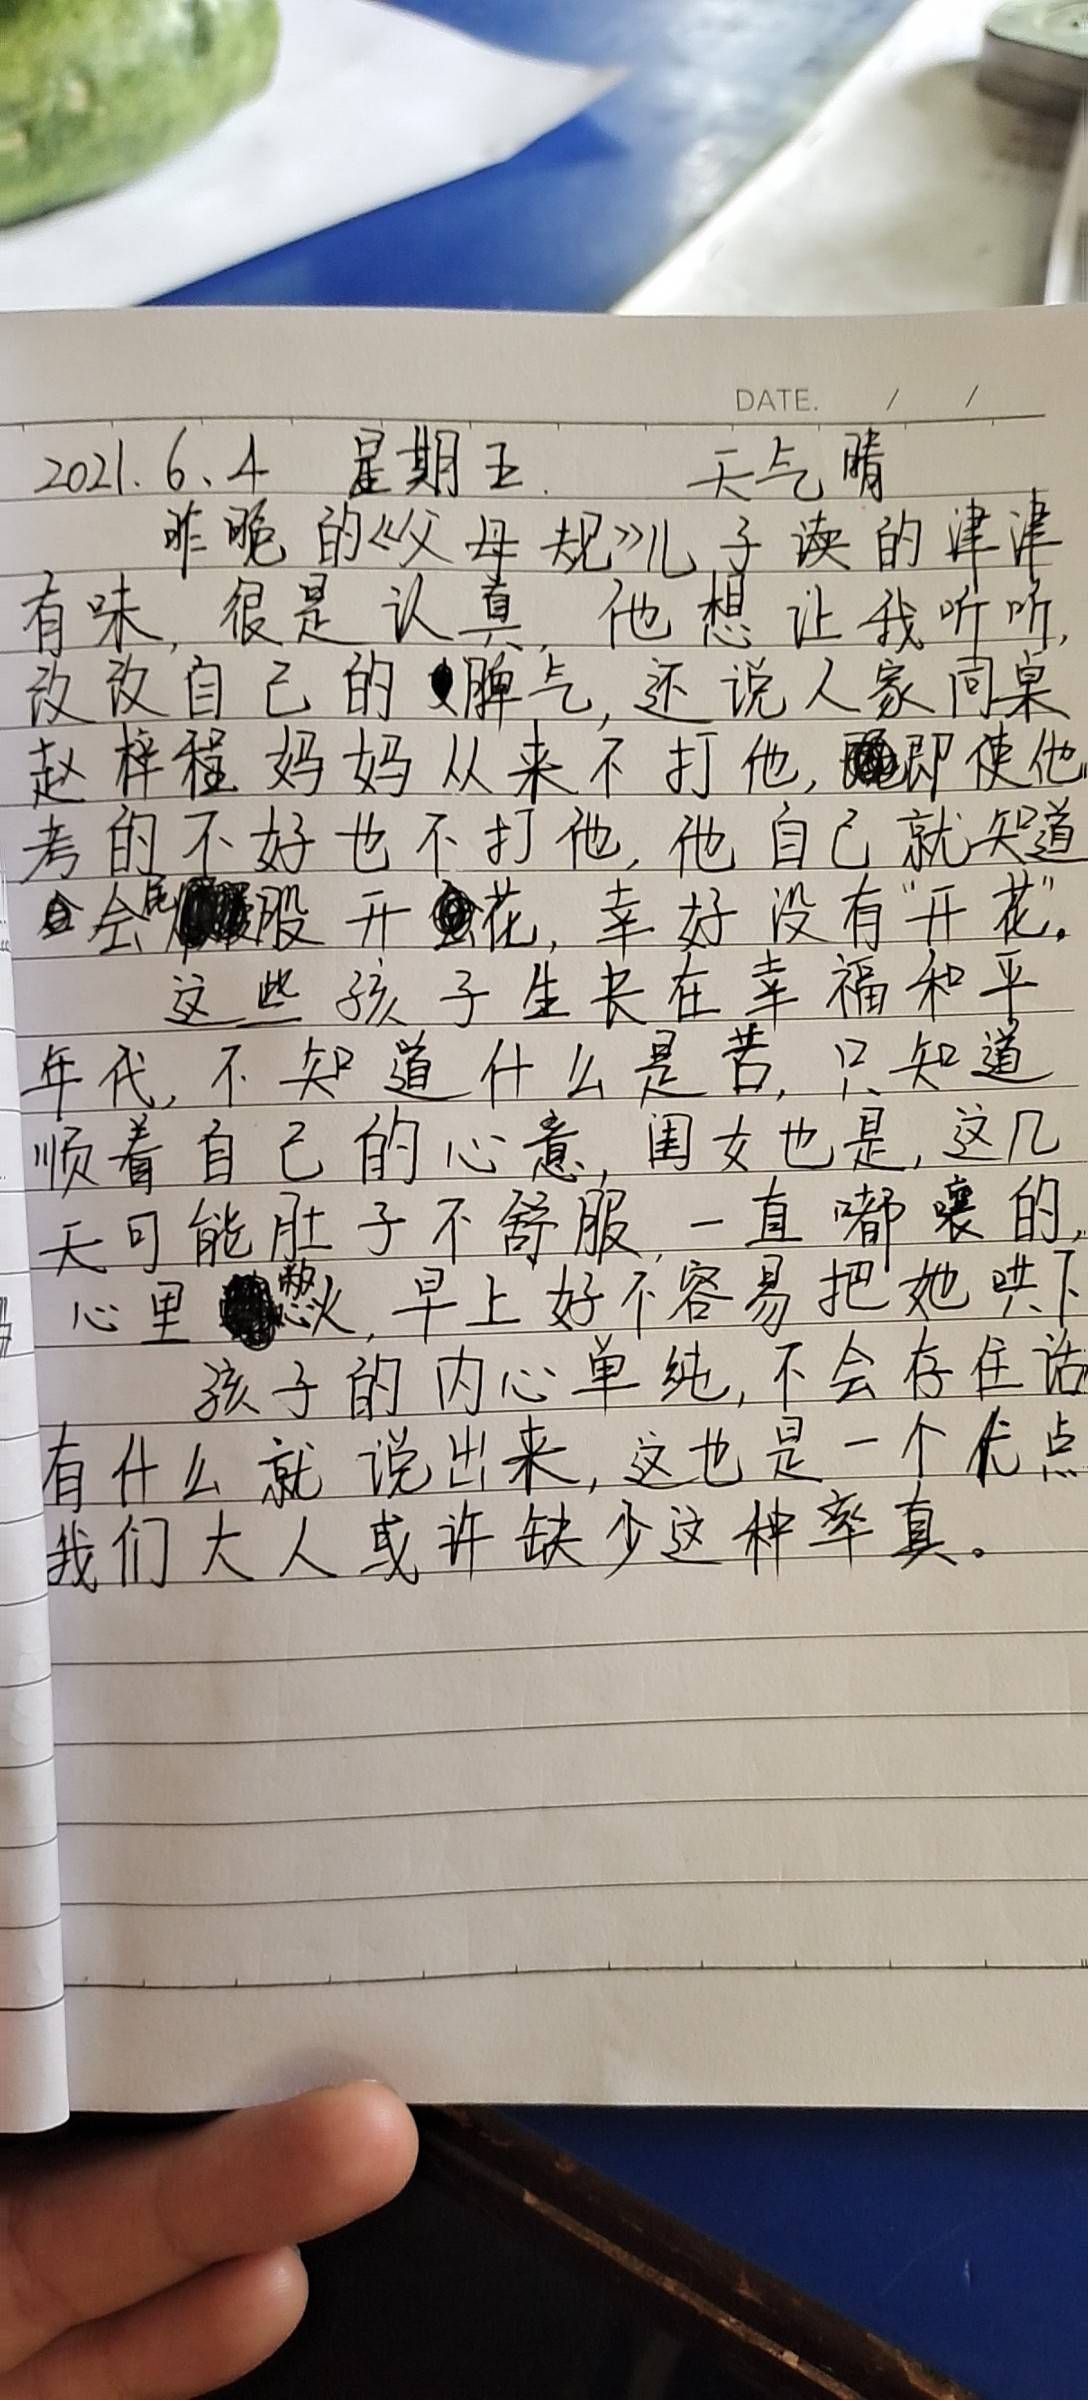 DATE. / /
2021.6、4 星期五. 天气晴
昨晚的《父母规》儿子读的津津
有味,很是认真,他想让我听听,
改改自己的脾气,还说人家同桌
赵梓程妈妈从来不打他,即使他
考的不好也不打他,他自己就知道
会屁股开花,幸好没有“开花”。
这些孩子生长在幸福和平
年代,不知道什么是苦,只知道
顺着自己的心意,闺女也是,这几
天可能肚子不舒服,一直嘟囔的,
心里憋火,早上好不容易把她哄下
孩子的内心单纯,不会存住话
有什么就说出来,这也是一个优点
我们大人或许缺少这种率真。